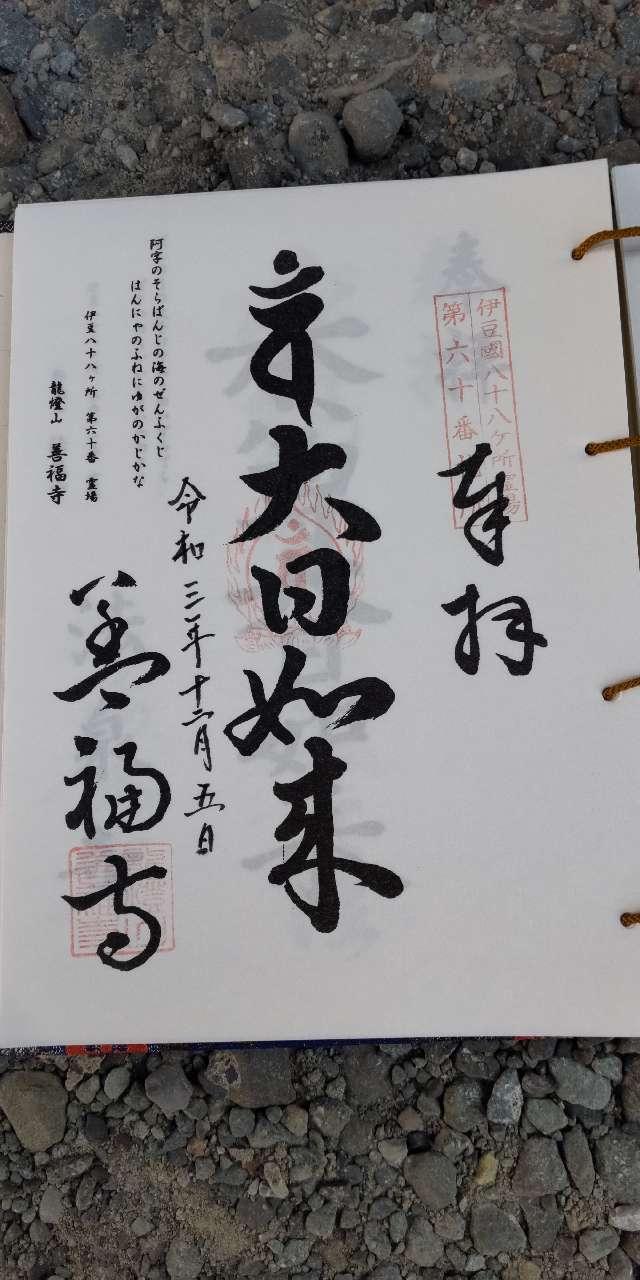 伊豆國八十八ケ所霊場
第六十番
奉拝
大日如来
令和三年十二月五日
阿字のそらばんじの海のぜんふくじ
はんにやのふねにゆがのかじかな
伊豆八十八ヶ所 第六十番 霊場
龍燈山 善福寺
善福寺